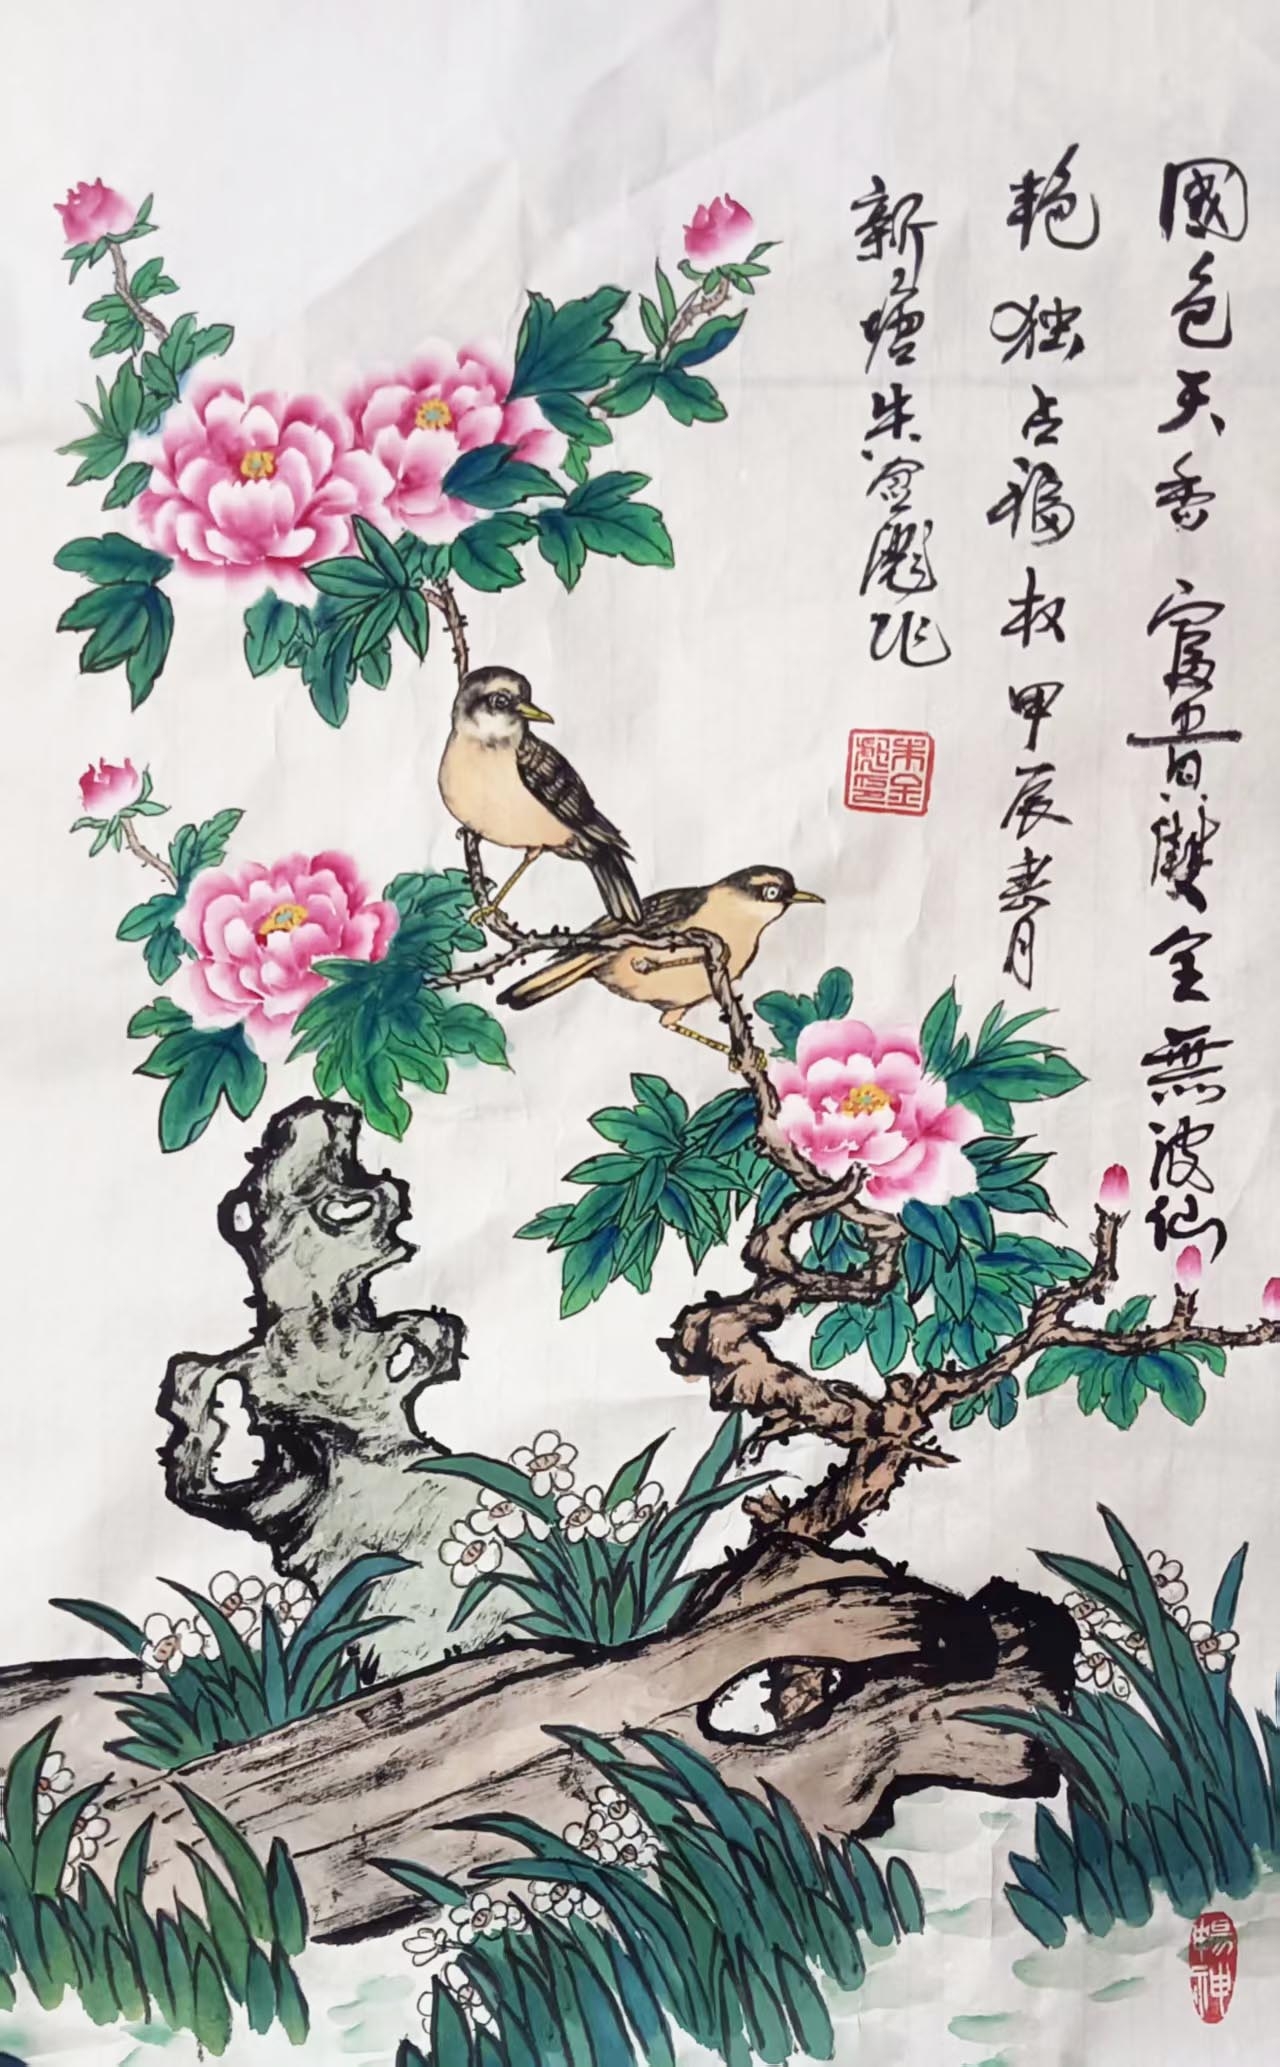 國色天香富貴雙全無波仙
艳独占福权甲辰春月
新塘朱金彪作
朱金彪印
暢神